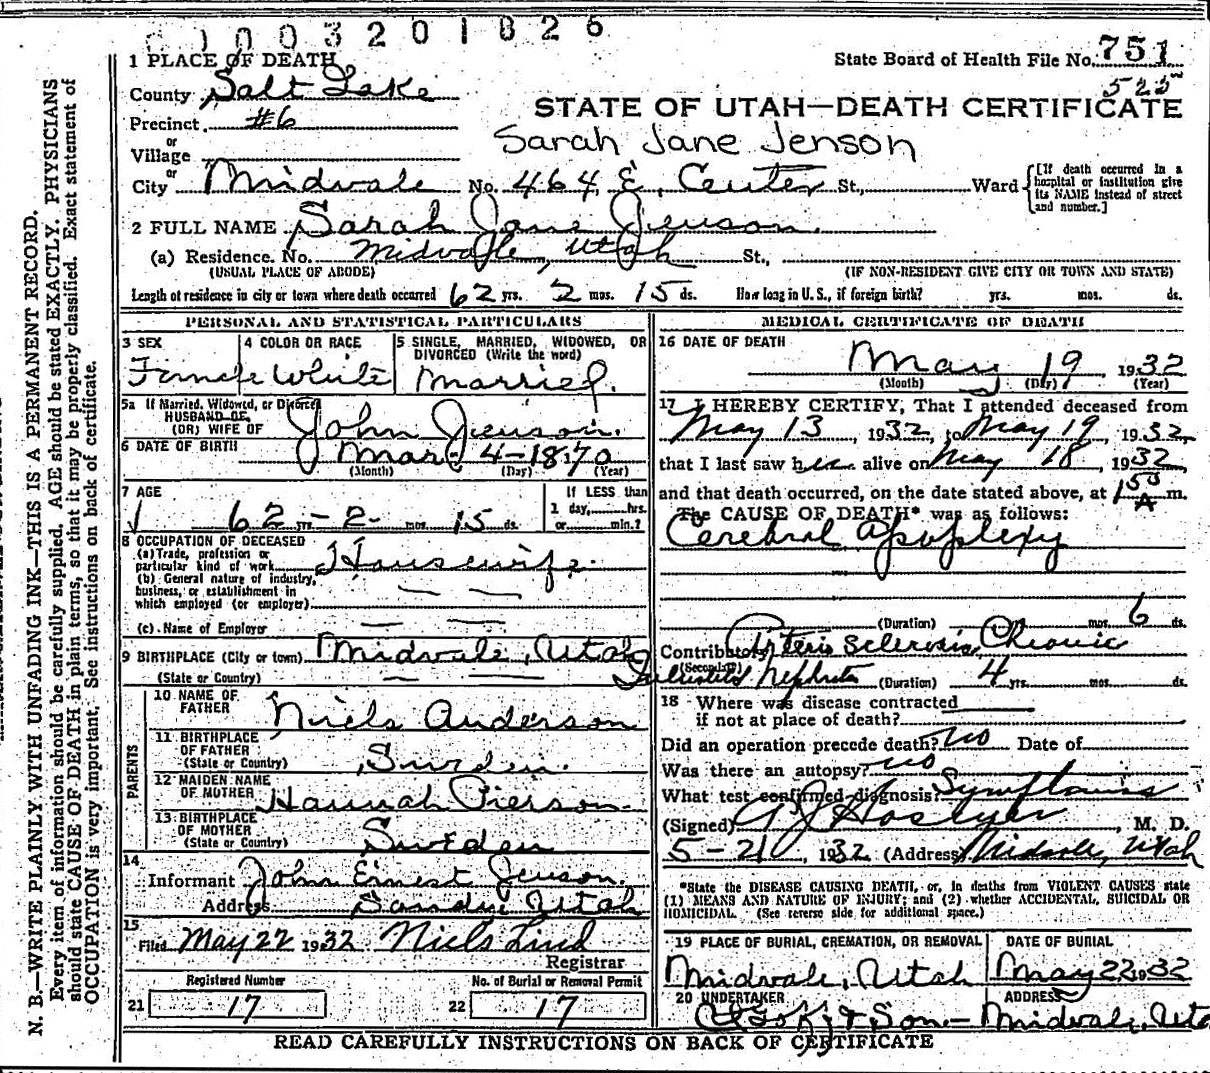 1003201826
1 PLACE OF DEATH
State Board of Health File No. 751
525
County Salt Lake
STATE OF UTAH—DEATH CERTIFICATE
Precinct #6
Sarah Jane Jenson
or
Village
or
City Midvale No. 464 E. Center St., Ward
[If death occurred in a hospital or institution give its NAME instead of street and number.]
2 FULL NAME Sarah Jane Jenson.
(a) Residence. No. Midvale, Utah St.,
(USUAL PLACE OF ABODE) (IF NON-RESIDENT GIVE CITY OR TOWN AND STATE)
Length of residence in city or town where death occurred 62 yrs. 2 mos. 15 ds. How long in U. S., if foreign birth? yrs. mos. ds.
PERSONAL AND STATISTICAL PARTICULARS
3 SEX
Female
4 COLOR OR RACE
White
5 SINGLE, MARRIED, WIDOWED, OR DIVORCED (Write the word)
Married.
5a If Married, Widowed, or Divorced
HUSBAND OF
(OR) WIFE OF John Jenson.
6 DATE OF BIRTH Mar. 4-1870
(Month) (Day) (Year)
7 AGE
62 yrs. - 2 mos. 15 ds.
If LESS than
1 day, hrs.
or min.?
8 OCCUPATION OF DECEASED
(a) Trade, profession or
particular kind of work Housewife.
(b) General nature of industry,
business, or establishment in
which employed (or employer)
(c) Name of Employer
9 BIRTHPLACE (City or town) Midvale, Utah
(State or Country)
PARENTS
10 NAME OF
FATHER Niels Anderson
11 BIRTHPLACE
OF FATHER
(State or Country) Sweden.
12 MAIDEN NAME
OF MOTHER Hannah Pierson.
13 BIRTHPLACE
OF MOTHER
(State or Country) Sweden
14
Informant John Ernest Jenson.
Address Sandy Utah
15
Filed May 22 1932 Niels Lind
Registrar
Registered Number
21 17
No. of Burial or Removal Permit
22 17
MEDICAL CERTIFICATE OF DEATH
16 DATE OF DEATH
May 19 1932
(Month) (Day) (Year)
17 I HEREBY CERTIFY, That I attended deceased from
May 13, 1932, to May 19 1932
that I last saw her alive on May 18, 1932
and that death occurred, on the date stated above, at 1 50 A m.
The CAUSE OF DEATH* was as follows:
Cerebral Apoplexy
(Duration) mos. 6 ds.
Contributory Arterio Sclerosis, Chronic
(Secondary) Interstitial Nephritis (Duration) 4 yrs. mos. ds.
18 Where was disease contracted
if not at place of death?
Did an operation precede death? no Date of
Was there an autopsy? no
What test confirmed diagnosis? Symptoms
(Signed) M. D.
5-21, 1932 (Address) Midvale, Utah
*State the DISEASE CAUSING DEATH, or, in deaths from VIOLENT CAUSES state
(1) MEANS AND NATURE OF INJURY; and (2) whether ACCIDENTAL, SUICIDAL OR
HOMICIDAL. (See reverse side for additional space.)
19 PLACE OF BURIAL, CREMATION, OR REMOVAL
Midvale, Utah
DATE OF BURIAL
May 22 1932
20 UNDERTAKER
& Son.—
ADDRESS
Midvale, Uta
READ CAREFULLY INSTRUCTIONS ON BACK OF CERTIFICATE
N. B.—WRITE PLAINLY WITH UNFADING INK—THIS IS A PERMANENT RECORD.
Every item of information should be carefully supplied. AGE should be stated EXACTLY. PHYSICIANS
should state CAUSE OF DEATH in plain terms, so that it may be properly classified. Exact statement of
OCCUPATION is very important. See instructions on back of certificate.